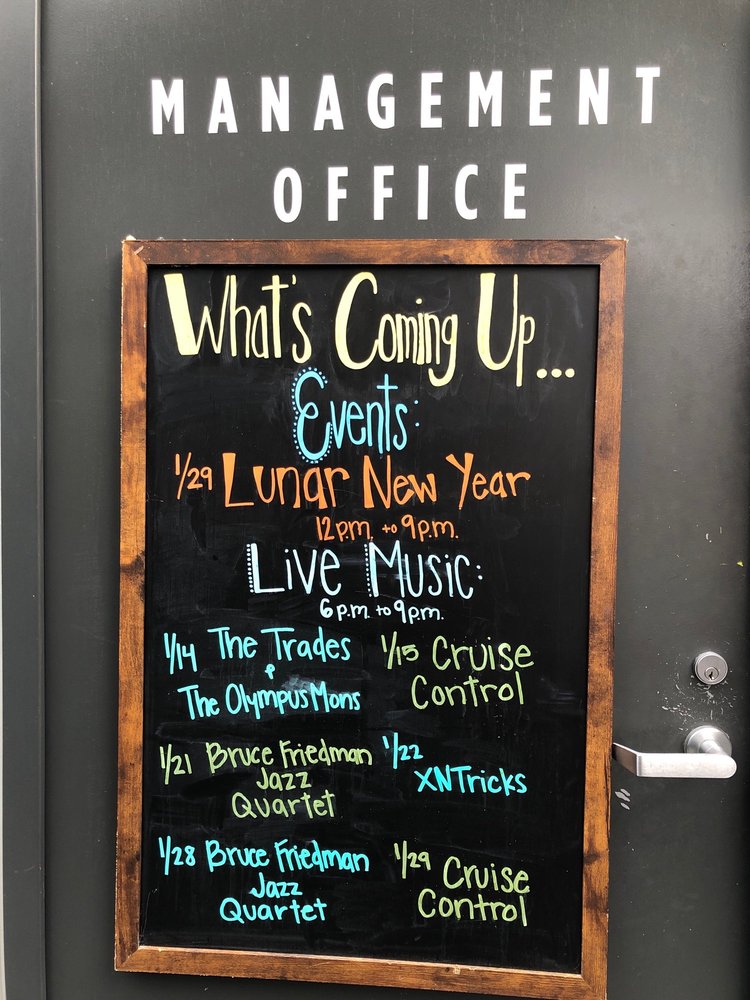 MANAGEMENT
OFFICE
What's Coming Up...
Events:
1/29 Lunar New Year
12 p.m. to 9 p.m.
Live Music:
6 p.m. to 9 p.m.
1/14 The Trades
&
The Olympus Mons
1/15 Cruise
Control
1/21 Bruce Friedman
Jazz
Quartet
1/22
XNTricks
1/28 Bruce Friedman
Jazz
Quartet
1/29 Cruise
Control